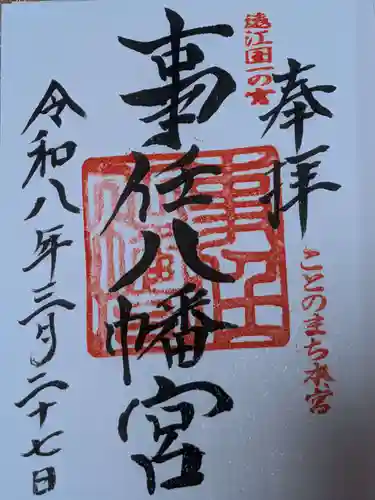 奉拝
遠江国一の宮
ことのまち本宮
事任八幡宮
令和八年三月二十七日